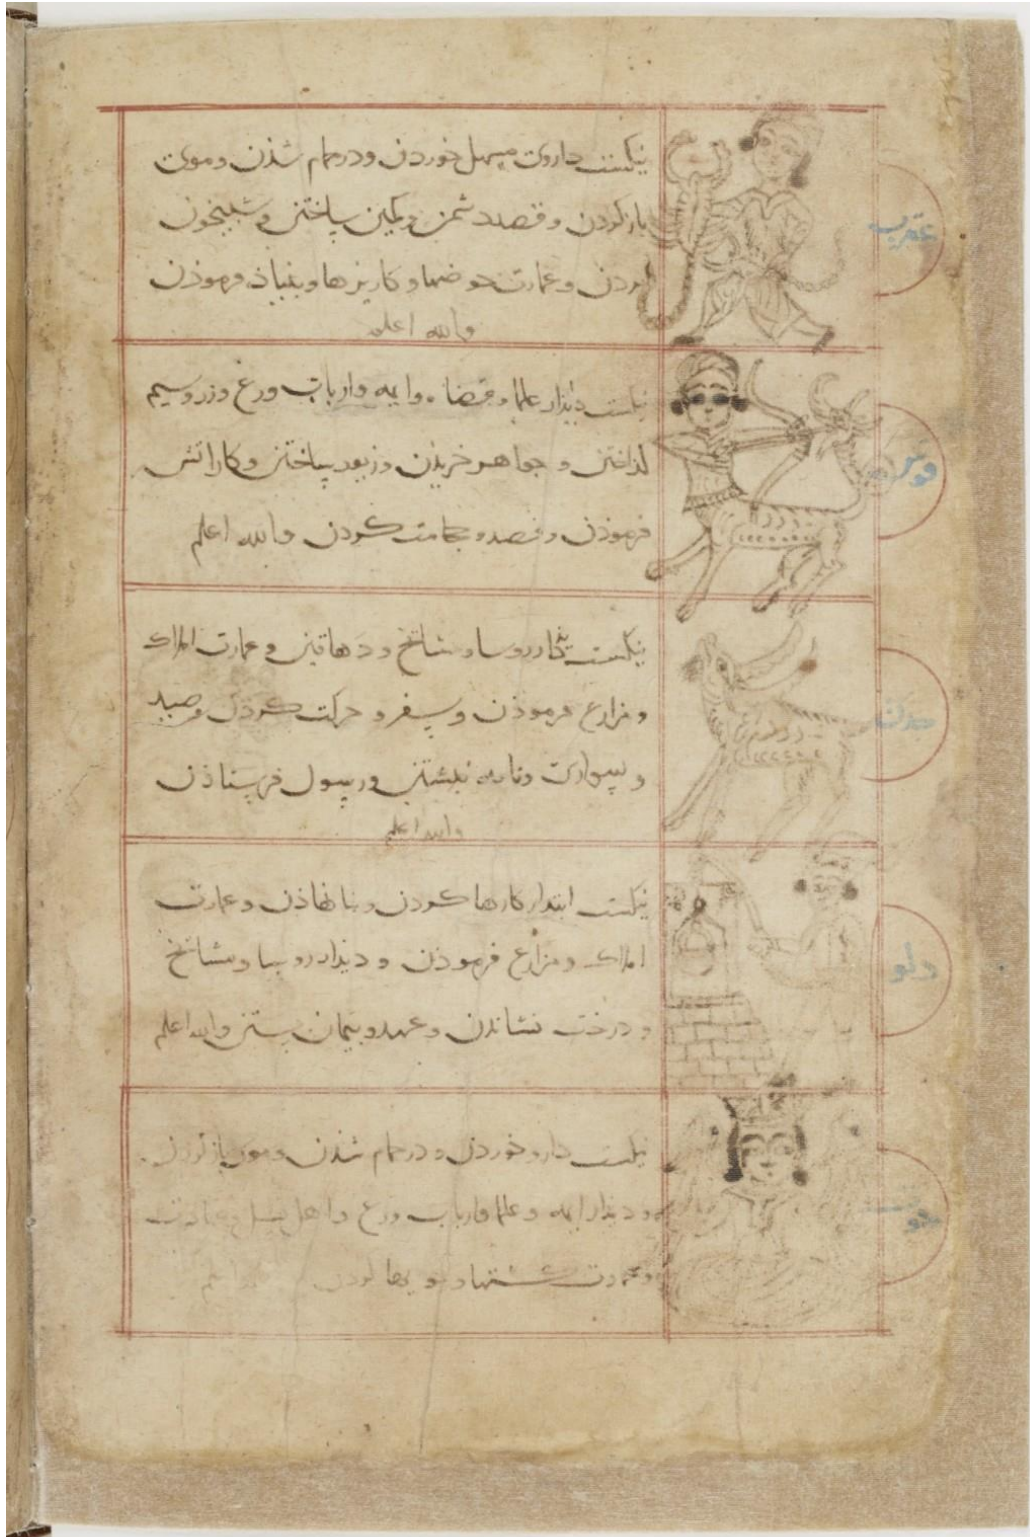 عقرب
نیکست داروی مسهل خوردن و در حمام شذن و موی
باز کردن و قصد دشمن و کمین ساختن و شبیخون
کردن و عمارت حوضها و کاریزها و بنیاذ فرموذن
والله اعلم
قوس
نیکست دیذار علما و قضاه و ایمه و ارباب ورع و زر و سیم
کذاختن و جواهر خریذن و زیور ساختن و کار اتش
فرموذن و فصد و حجامت کردن والله اعلم
جدی
نیکست دیذار روسا و مشایخ و دهاقین و عمارت املاک
و مزارع فرموذن و سفر و حرکت کردن و صید
و سواری و نامه نبشتن و رسول فرستاذن
والله اعلم
دلو
نیکست ابتدا کارها کردن و بنا نهاذن و عمارت
املاک و مزارع فرموذن و دیذار روسا و مشایخ
و درخت نشاندن و عهد و پیمان بستن والله اعلم
حوت
نیکست دارو خوردن و در حمام شذن و موی باز کردن
و دیذار ایمه و علما و ارباب ورع و اهل
و عمارت کشتیها و جویها کردن